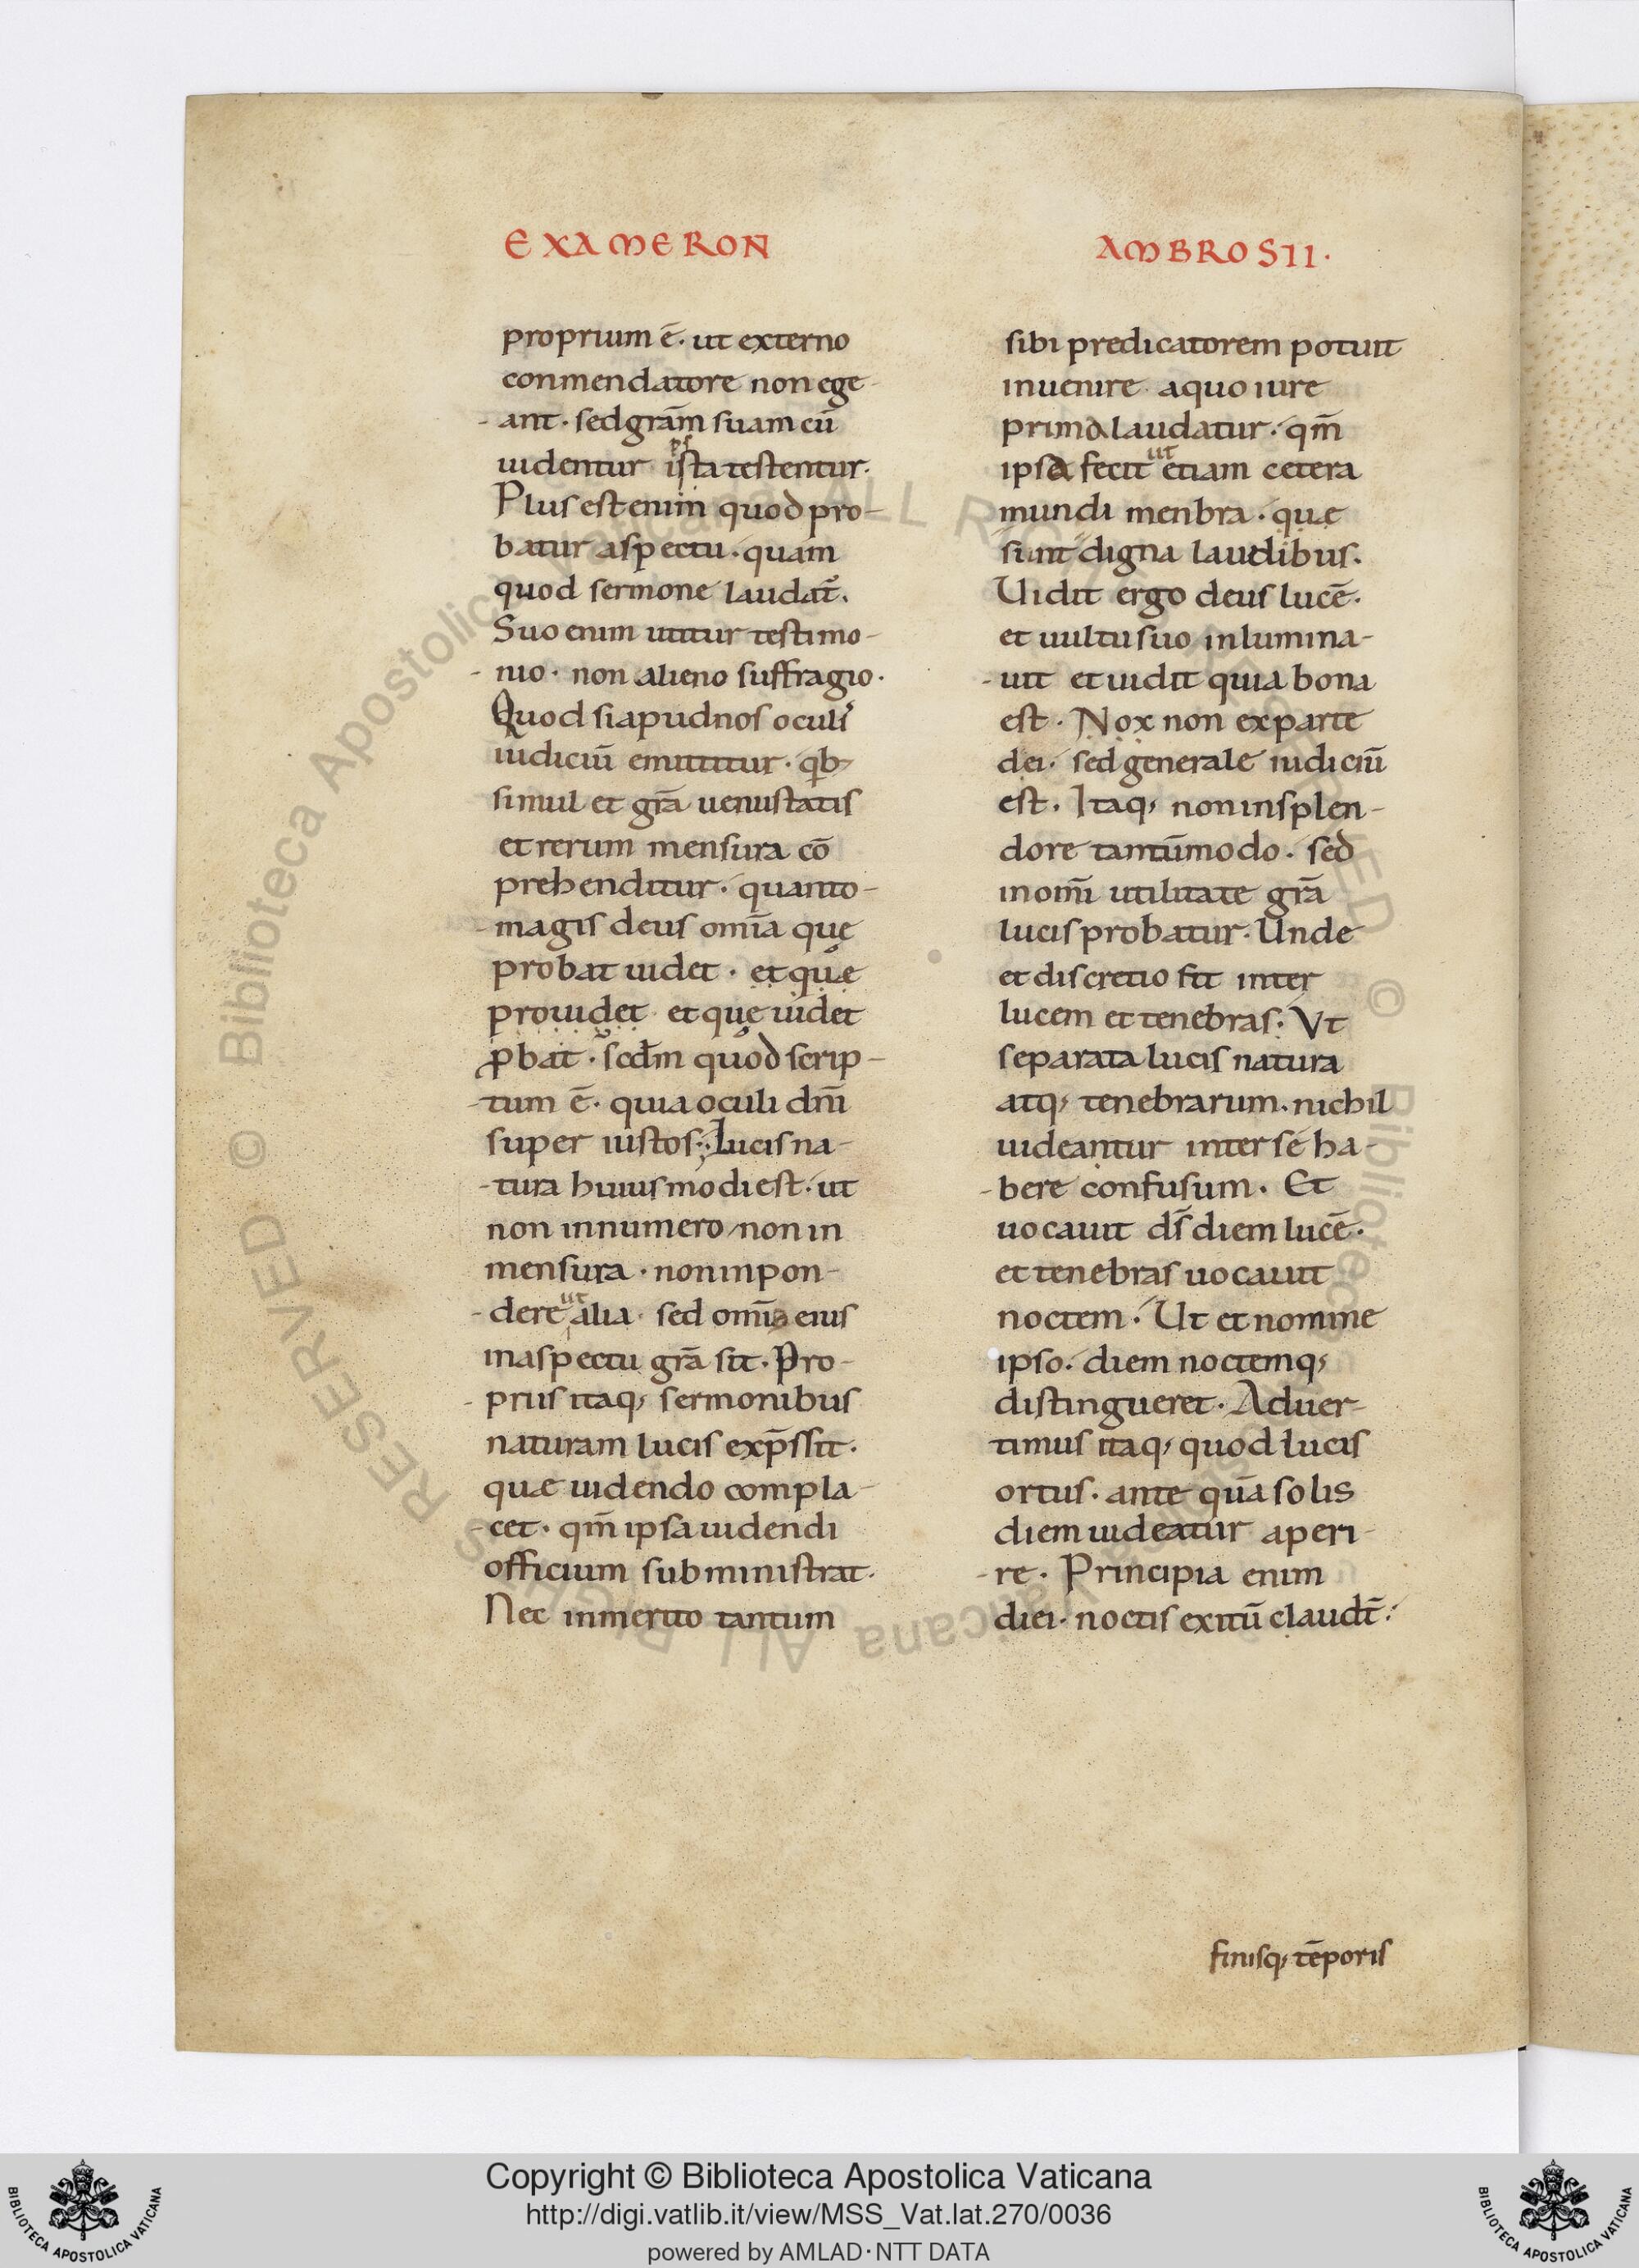 EXAMERON
AMBROSII·
proprium ē· ut externo
conmendatore non ege
ant· sed grām suam cū
uidentur ista testentur·
ps
Plus est enim quod pro-
batur aspectu· quam
quod sermone laudat̄·
Suo enim utitur testimo-
nio· non alieno suffragio·
Quod si apud nos oculi
iudiciū emittitur· qb;
simul et grā uenustatis
et rerum mensura cō
prehenditur· quanto-
magis deus omīa quę
probat uidet· et quę
prouidet et quę uidet
ꝓbat· scdm quod scrip-
tum ē· quia oculi dn̄i
super iustos· Lucis na-
tura huiusmodi est· ut
non in numero non in
mensura· non in pon-
ut
dere alia· sed omīs eius
in aspectu grā sit· Pro-
priis itaq; sermonibus
naturam lucis exp̄ssit·
quae uidendo compla-
cet· qm̄ ipsa uidendi
officium subministrat·
Nec inmerito tantum
sibi predicatorem potuit
inuenire a quo iure
prima laudatur· qm̄
ut
ipsa fecit etiam cetera
mundi menbra· quę
sint digna laudibus·
Uidit ergo deus lucē·
et uultu suo inlumina-
uit et uidit quia bona
est· Nox non ex parte
dei· sed generale iudiciū
est· Itaq; non in splen-
dore tantūmodo· sed
in omī utilitate grā
lucis probatur· Unde
et discretio fit inter
lucem et tenebras· Vt
separata lucis natura
atq; tenebrarum· nichil
uideantur inter se ha-
bere confusum· Et
uocauit ds̄ diem lucē·
et tenebras uocauit
noctem· Ut et nomine
ipso· diem noctemq;
distingueret· Aduer-
timus itaq; quod lucis
ortus· ante quā solis
diem uideatur aperi-
re· Principia enim
diei· noctis exitū claudt̄·
finisq; tēporis
Copyright © Biblioteca Apostolica Vaticana
http://digi.vatlib.it/view/MSS_Vat.lat.270/0036
powered by AMLAD·NTT DATA
BIBLIOTECA APOSTOLICA VATICANA
BIBLIOTECA APOSTOLICA VATICANA